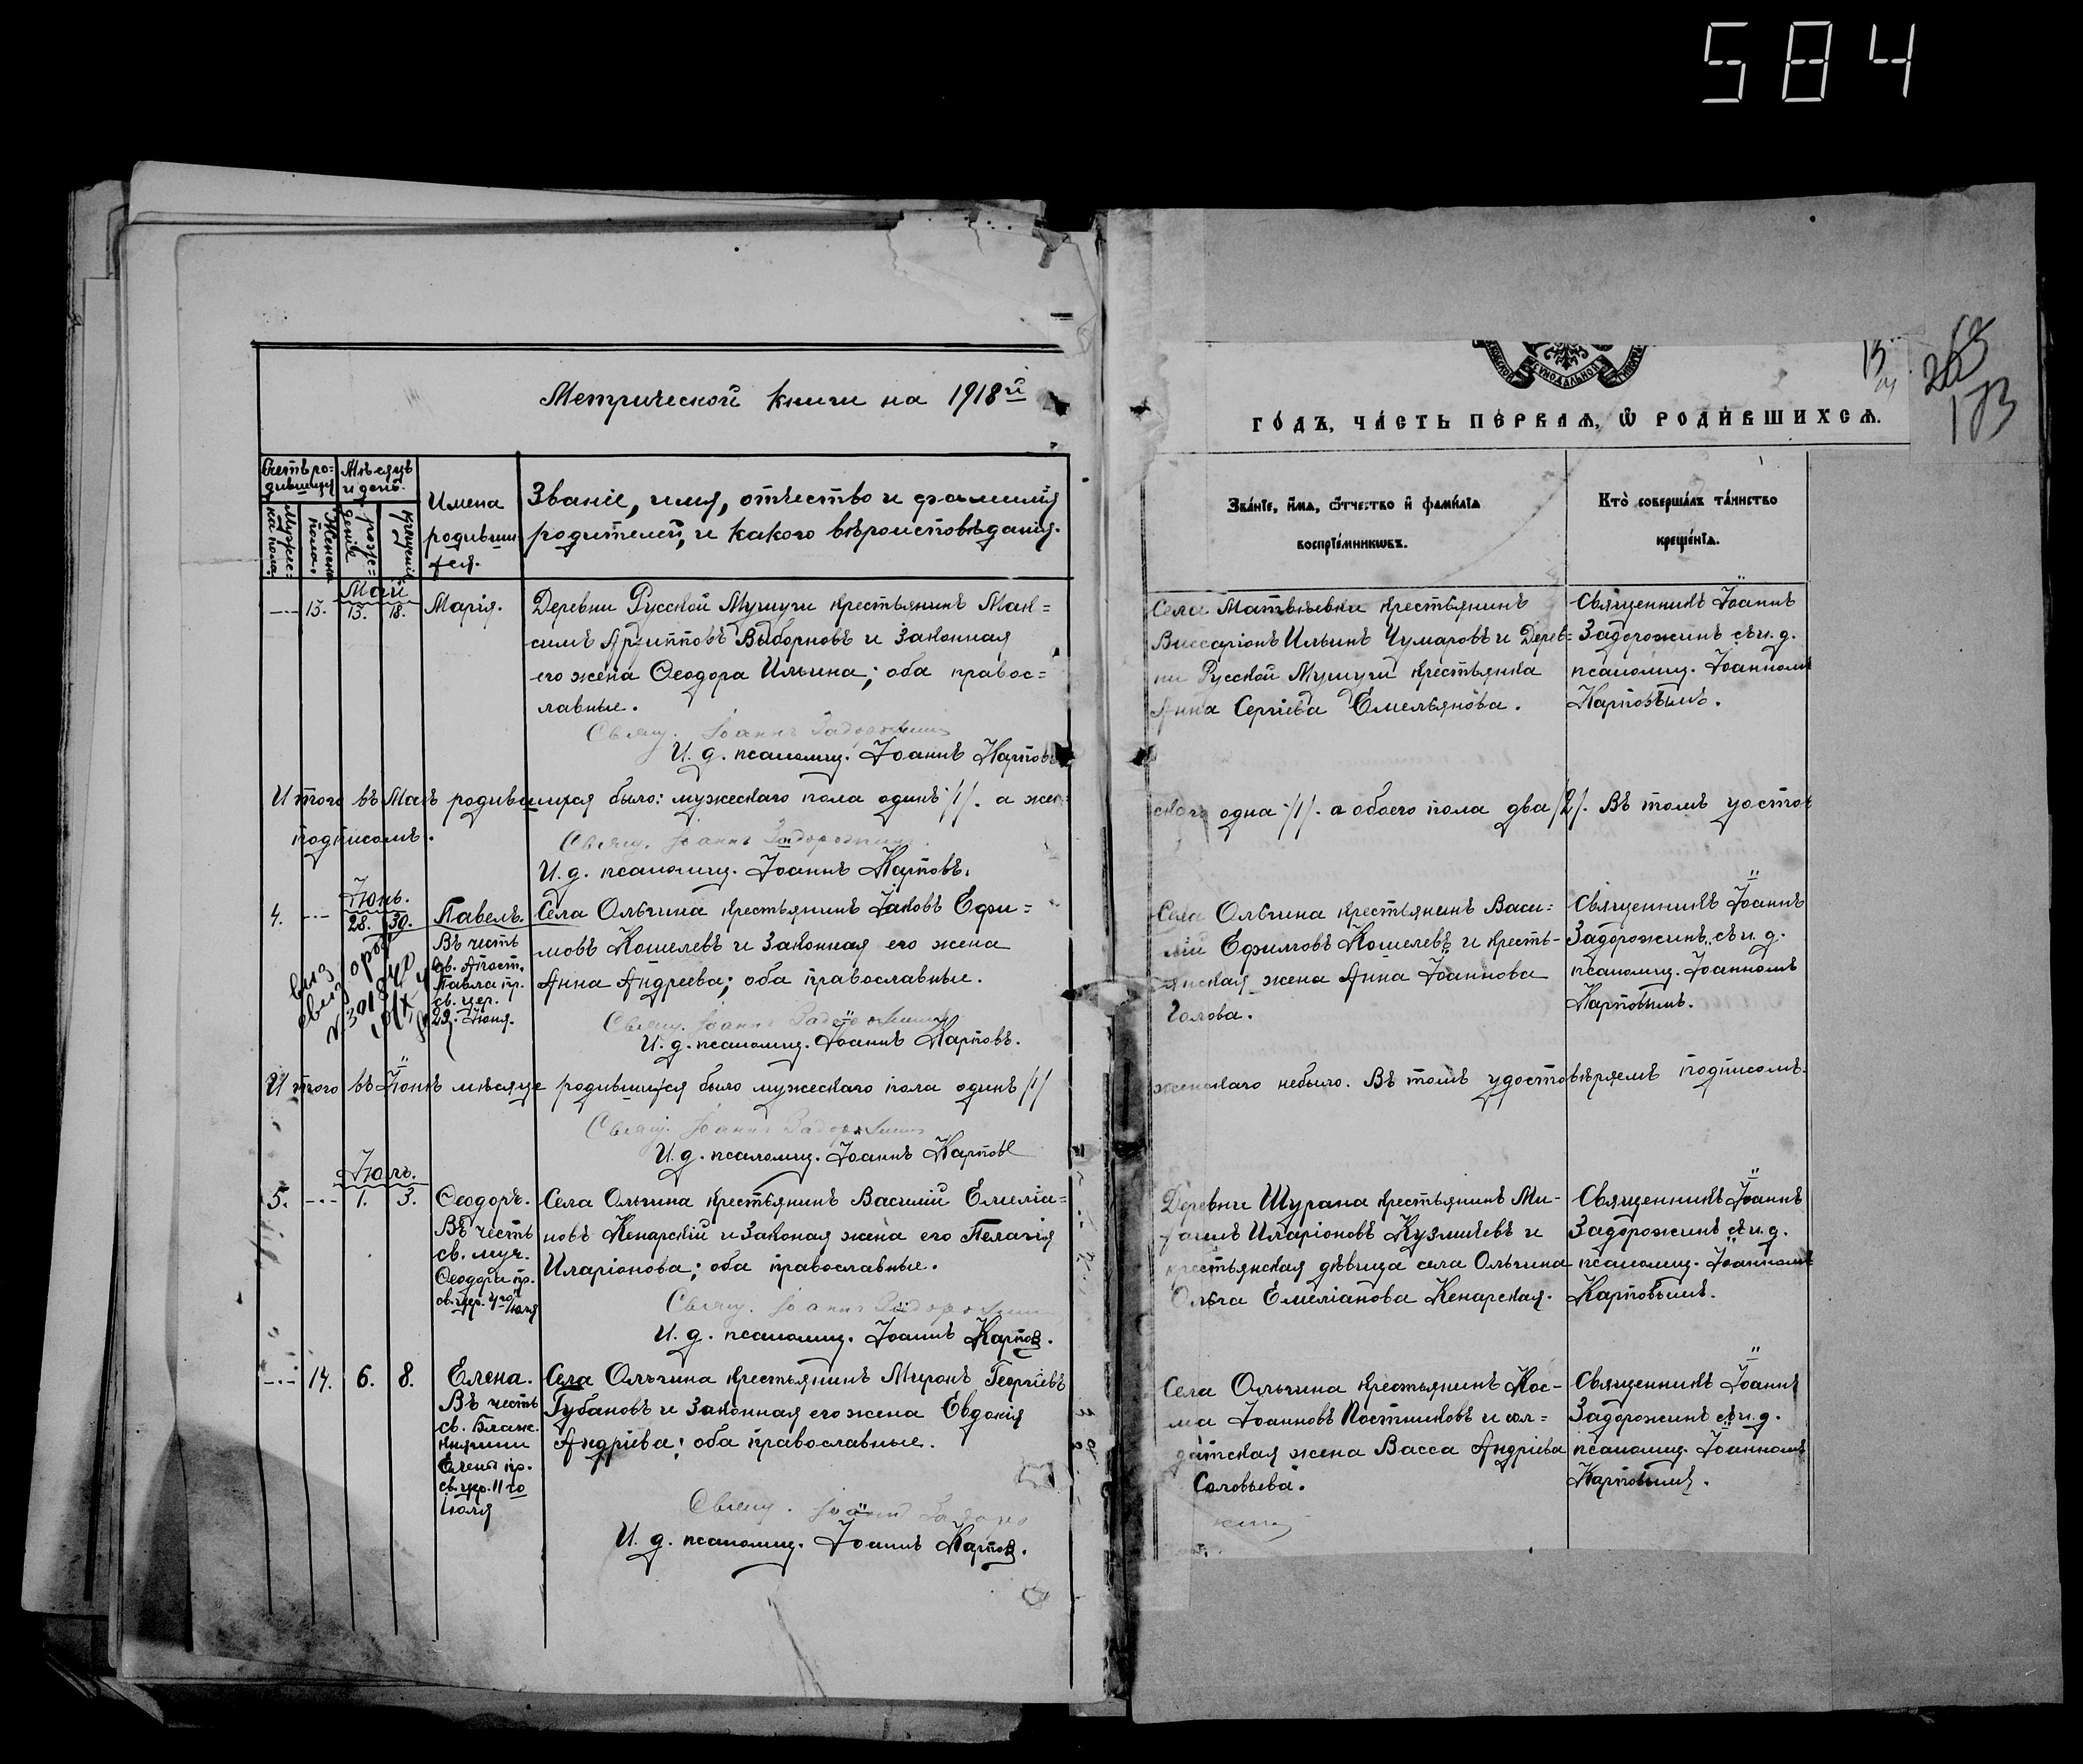 584
Метрической книги на 1918й
15
265
173
ГО́ДЪ, ЧА́СТЬ ПЕ́РВАѦ, Ѡ҆ РОДИ́ВШИХСѦ.
Счетъ ро-
дившихся
Мѣсяцъ
и день.
Мужес-
ка пола.
Женска
пола.
рож-
деніе
крещеніе
Имена
родивши
хся.
Званіе, имя, отчество и фамилія
родителей, и какого вѣроисповѣданія.
Зва́нїе, и҆́мѧ, ѻ҆́тчество и҆ фами́лїѧ
воспрїе́мникѡвъ.
Кто̀ соверша́лъ та́инство
креще́нїѧ.
Май
--- 15. 15. 18. Марія.
Деревни Русской Мушуги крестьянинъ Мак=
симъ Архипповъ Выборновъ и законная
его жена Ѳеодора Ильина; оба правос=
лавные.
Свящ. Іоаннъ Задорожнинъ
И. д. псаломщ. Іоаннъ Карповъ
Села Матвѣевки крестьянинъ
Виссаріонъ Ильинъ Чумаровъ и Дерев=
ни Русской Мушуги крестьянка
Анна Сергіева Емельянова.
Священникъ Іоаннъ
Задорожнинъ съ и. д.
псаломщ. Іоанномъ
Карповымъ.
Итого въ Маѣ родившихся было: мужескаго пола одинъ /1/. а жен=
скаго одна /1/. а обоего пола два /2/. Въ томъ удостов
подписомъ.
Свящ. Іоаннъ Задорожнинъ.
И. д. псаломщ. Іоаннъ Карповъ.
Іюнь.
4. --- 28. 30. Павелъ.
Въ честь
св. Апост.
Павла пр.
св. цер.
29. Іюня.
Села Ольгина крестьянинъ Іаковъ Ефи=
мовъ Кошелевъ и законная его жена
Анна Андреева; оба православные.
Свящ. Іоаннъ Задорожнинъ
И. д. псаломщ. Іоаннъ Карповъ.
Села Ольгина крестьянинъ Васи=
лій Ефимовъ Кошелевъ и кресть-
янская жена Анна Іоаннова
Голова.
Священникъ Іоаннъ
Задорожнинъ, съ и. д.
псаломщ. Іоанномъ
Карповымъ.
Итого въ Іюнѣ мѣсяце родившихся было мужескаго пола одинъ /1/
женскаго небыло. Въ томъ удостовѣряемъ подписомъ.
Свящ. Іоаннъ Задорожнинъ
И. д. псаломщ. Іоаннъ Карповъ
Іюль.
5. --- 1. 3. Ѳеодоръ.
Въ честь
св. муч.
Ѳеодора пр.
св. цер. 4го Іюля
Села Ольгина крестьянинъ Василій Емеліа=
новъ Кенарскій и законая жена его Пелагія
Иларіонова; оба православные.
Свящ. Іоаннъ Задорожнинъ
И. д. псаломщ. Іоаннъ Карпов.
Деревни Шурана крестьянинъ Ми-
хаилъ Иларіоновъ Кузмичевъ и
крестьянская дѣвица села Ольгина
Ольга Емеліанова Кенарская.
Священникъ Іоаннъ
Задорожнинъ съ и. д.
псаломщ. Іоанномъ
Карповымъ.
--- 14. 6. 8. Елена.
Въ честь
св. Блаж.
княгини
Елены пр.
св. цер. 11го
Іюля
Села Ольгина крестьянинъ Миронъ Георгіевъ
Губановъ и законная его жена Евдокія
Андріева; оба православные.
Свящ. Іоаннъ Задоро
И. д. псаломщ. Іоаннъ Карпов.
Села Ольгина крестьянинъ Кос-
ма Іоанновъ Постниковъ и сол=
датская жена Васса Андріева
Соловьева.
Священникъ Іоаннъ
Задорожнинъ съ и. д.
псаломщ. Іоанномъ
Карповымъ.